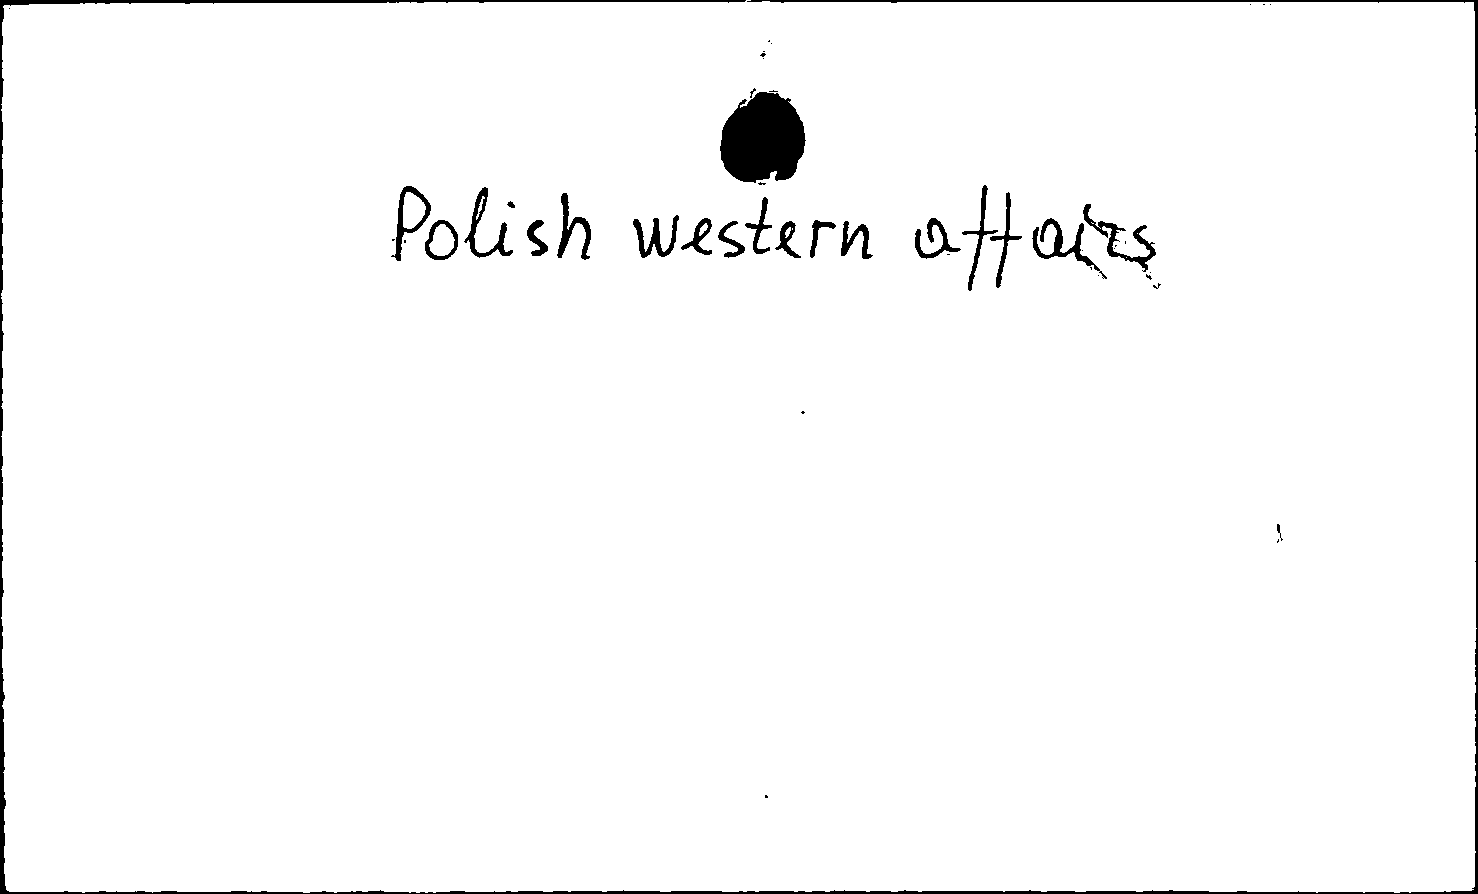 Polish western affairs